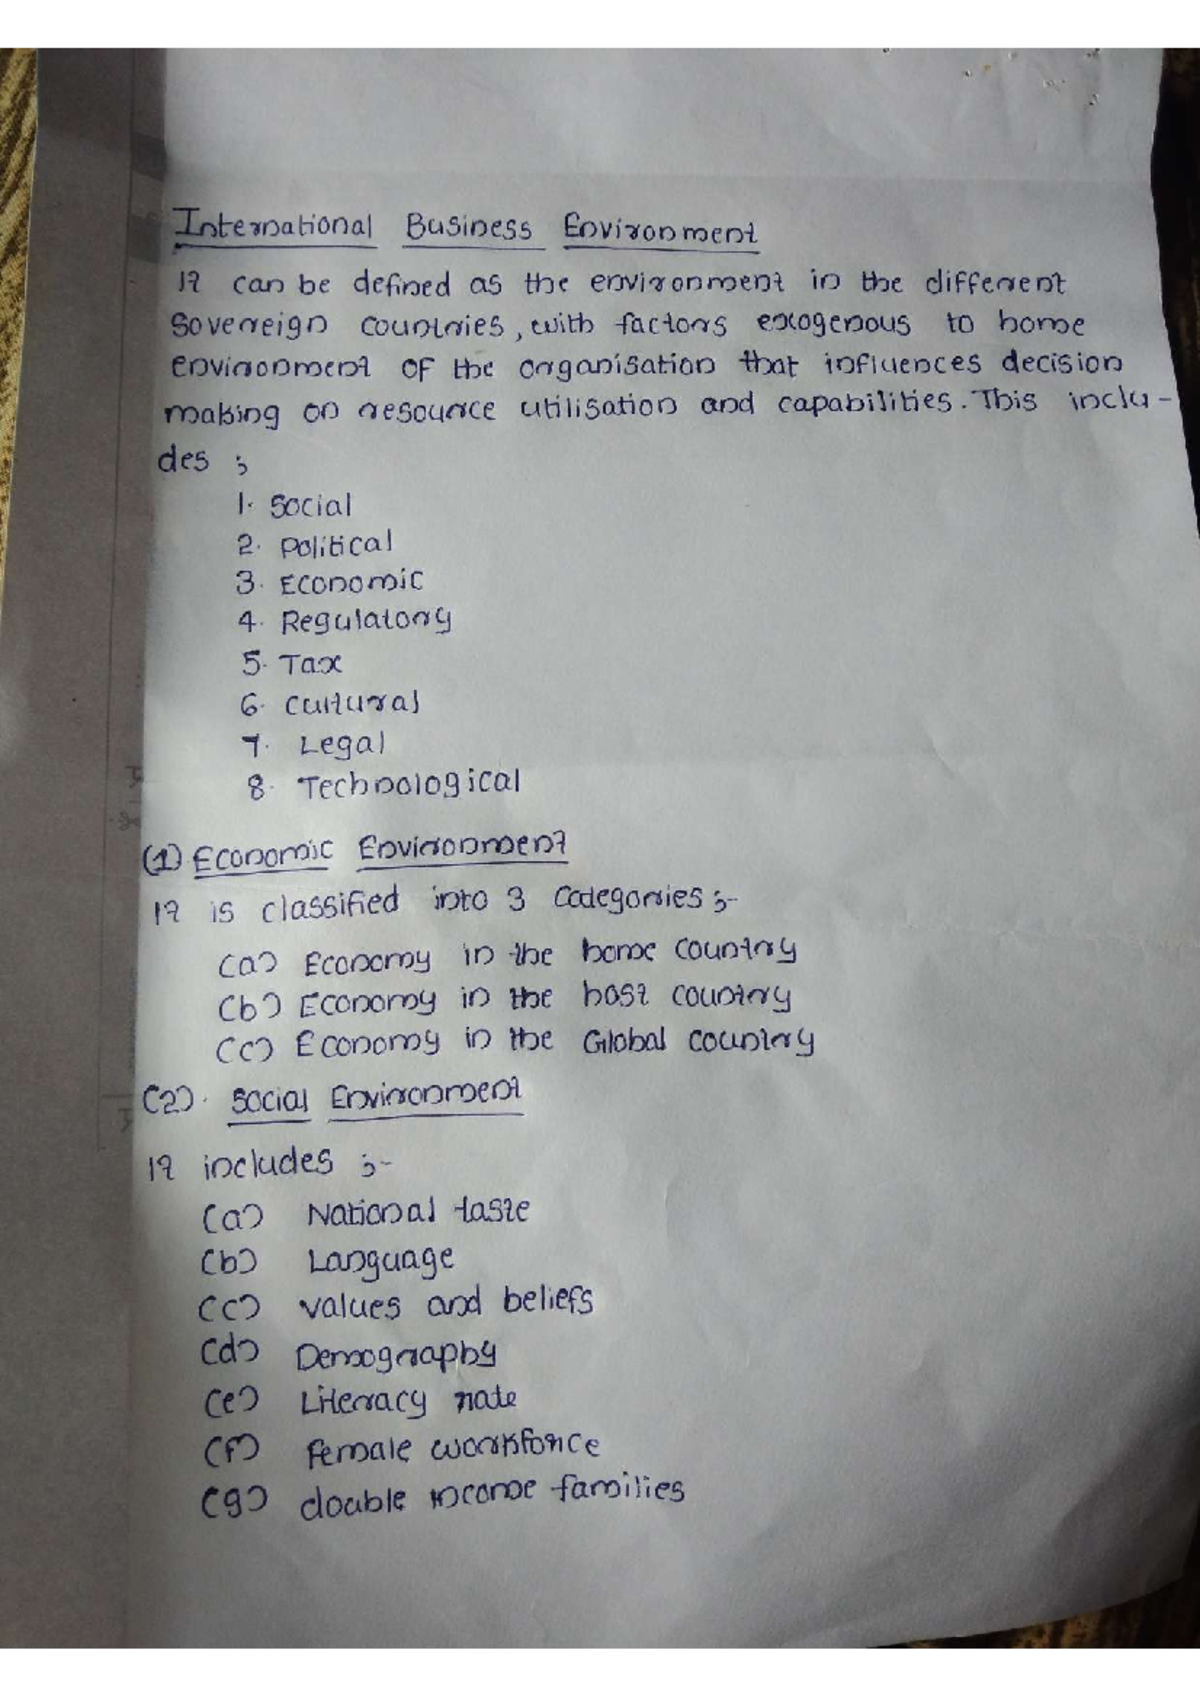 International Business Environment
It can be defined as the environment in the different
Sovereign countries, with factors exogenous to home
environment of the organisation that influences decision
making on resource utilisation and capabilities. This inclu-
des ;
1. Social
2. Political
3. Economic
4. Regulatory
5. Tax
6. Cultural
7. Legal
8. Technological
(1) Economic Environment
It is classified into 3 Categories ;-
(a) Economy in the home country
(b) Economy in the host country
(c) Economy in the Global country
(2). Social Environment
It includes ;-
(a) National taste
(b) Language
(c) values and beliefs
(d) Demography
(e) Literacy rate
(f) female workforce
(g) double income families